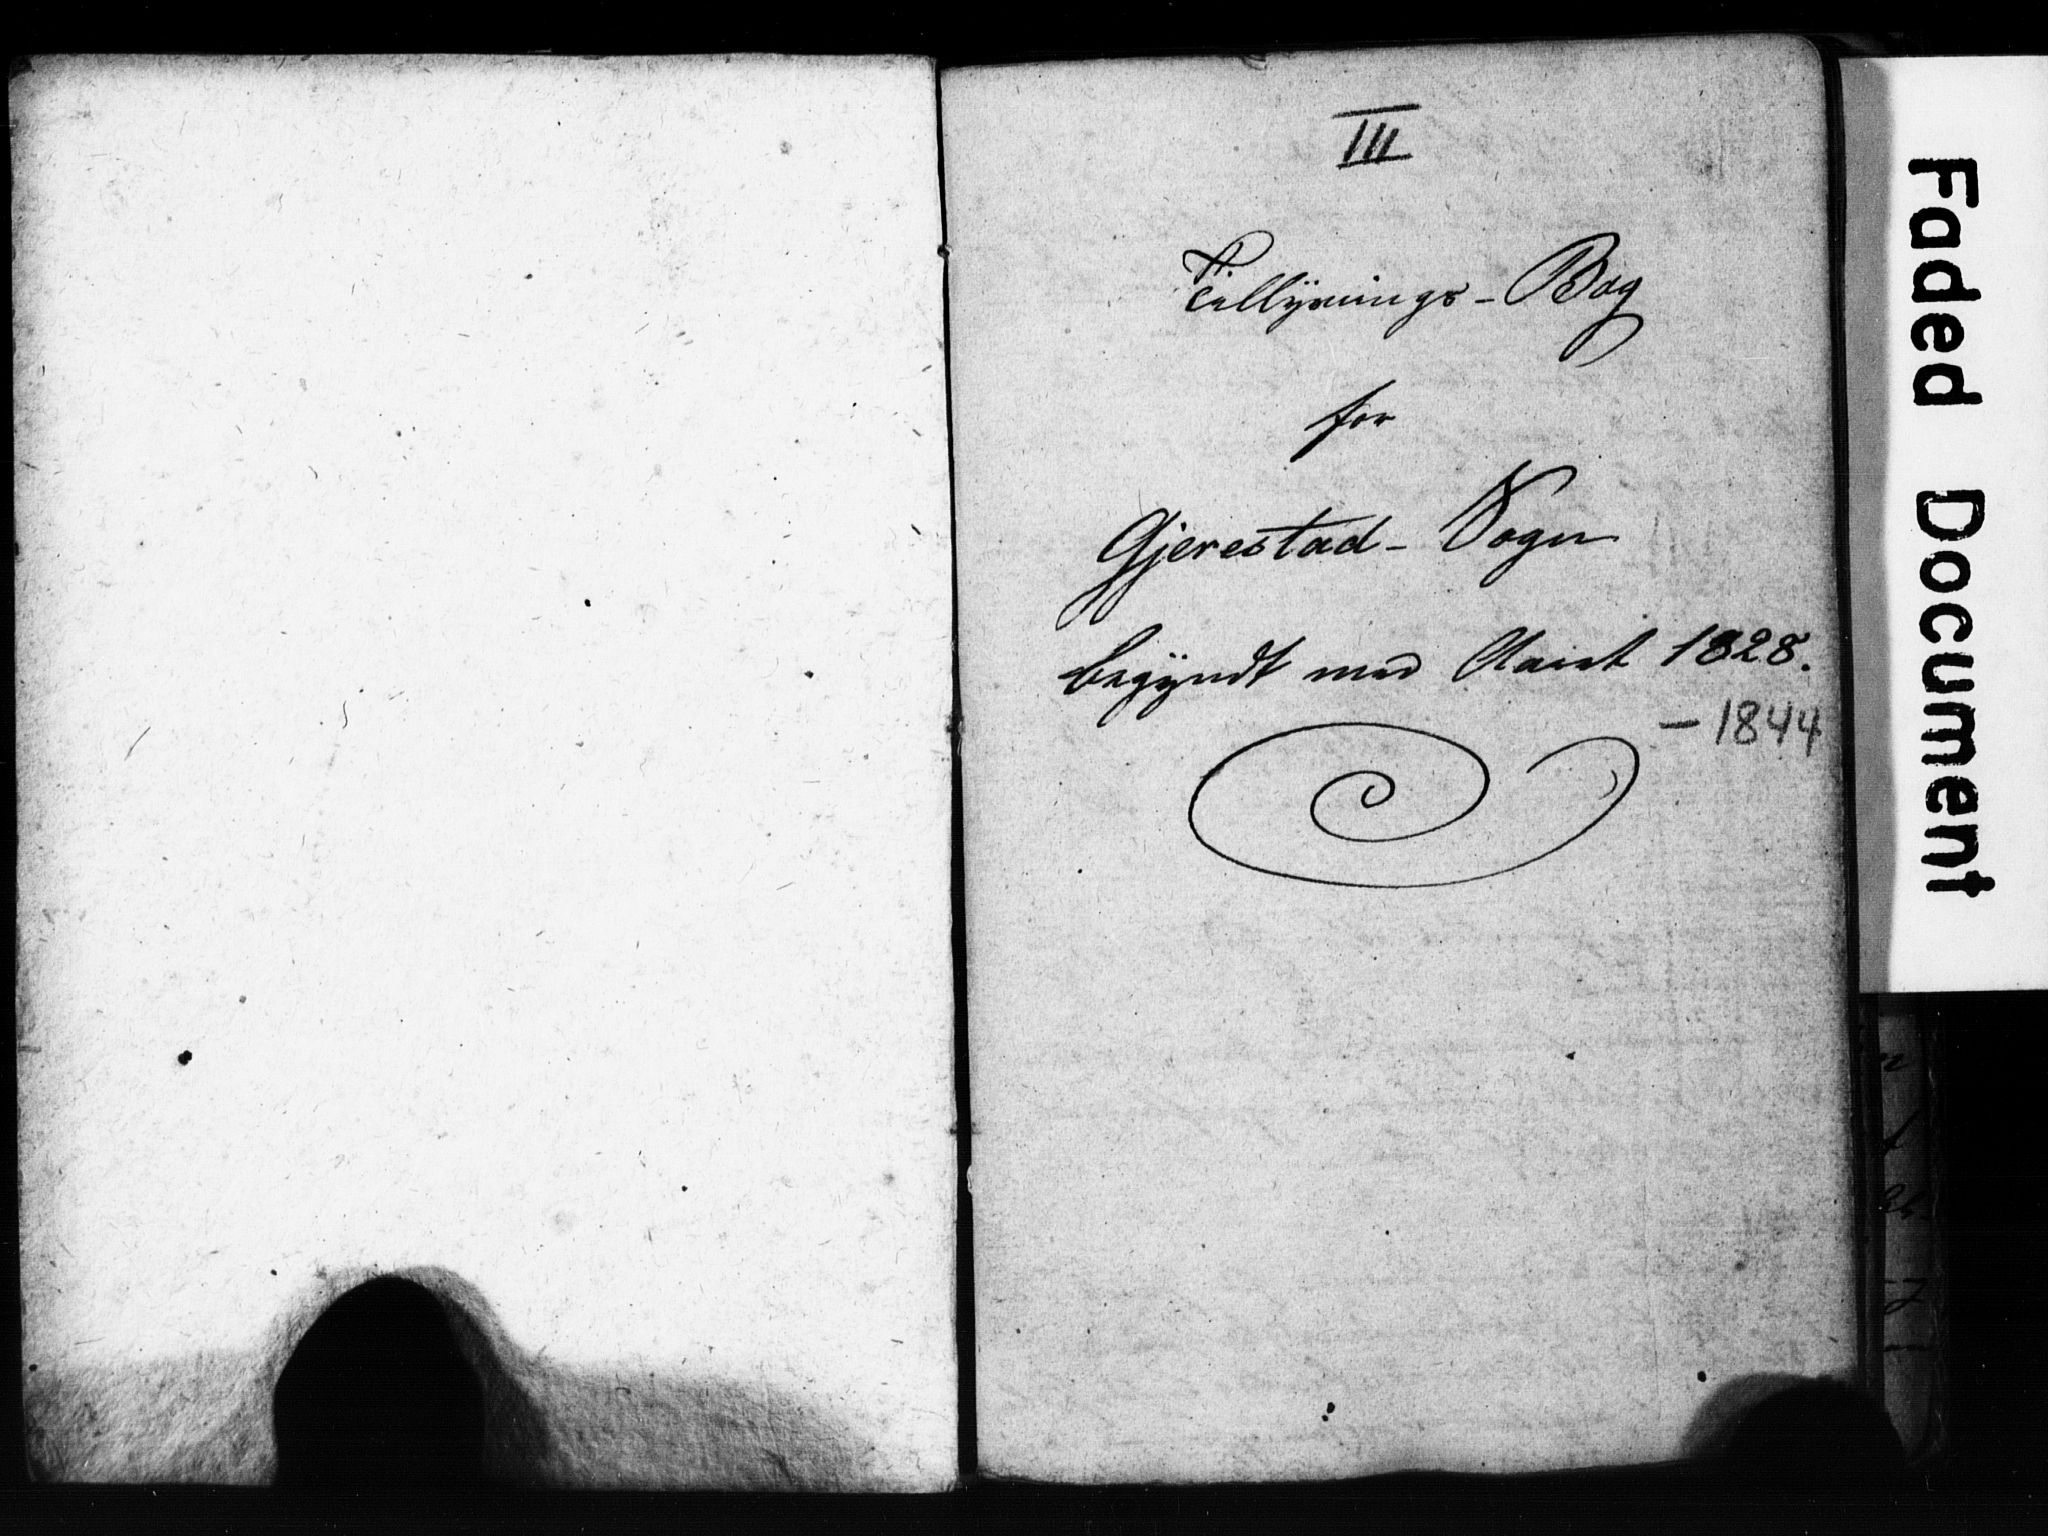 III
Tillysnings-Bog
for
Gjerestad-Sogn
begyndt med Aaret 1828.
-1844
Faded Document